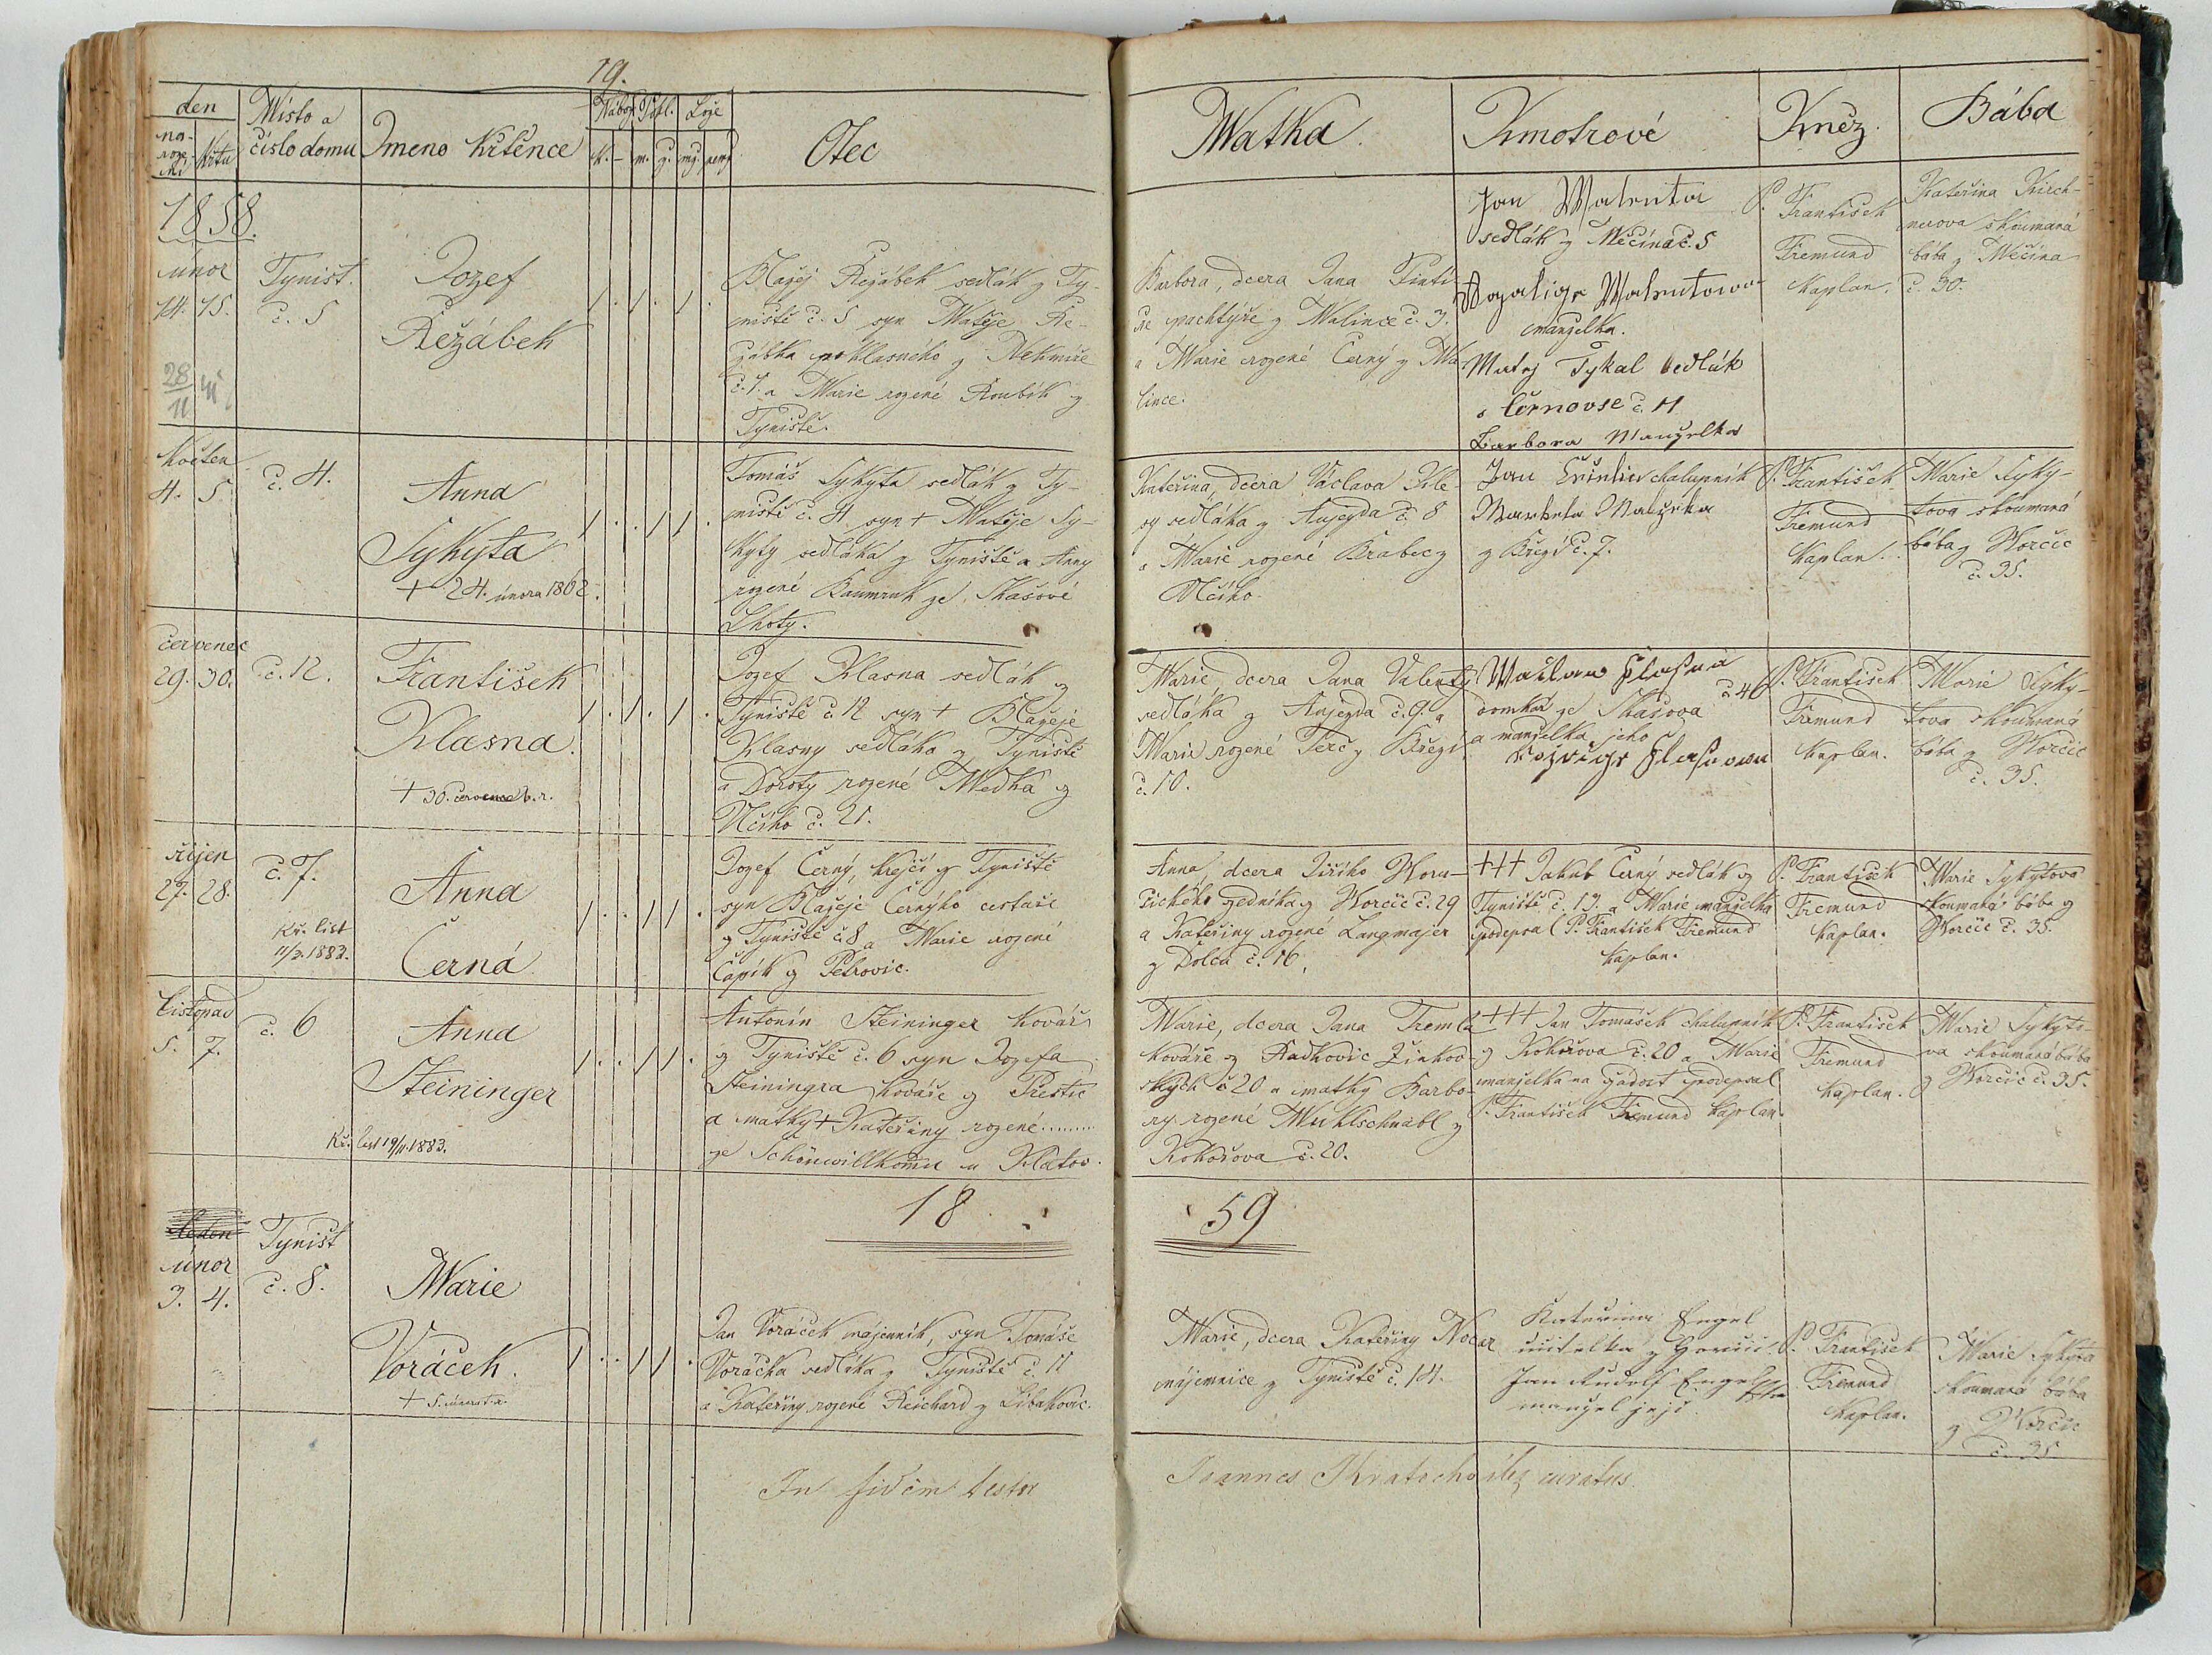 19.
den
na-
roze-
ní
křtu
Místo a
číslo domu
Jmeno křtěnce
Nábož.
Pohl.
Lože
k.
–
m.
ž.
mž.
nemž
Otec
Matka.
Kmotrové
Kněz.
Bába
1858.
únor
14. 15.
28/11
Tynist.
č. 5
Jozef
Řežábek
1 . 1 . 1 .
Blažej Řežábek sedlák z Ty-
niště č. 5 syn Matěje Ře-
žábka z Nekmíře
č. 7. a Marie rozené Roubík z
Tyniště.
Barbora, dcera Jana
pachtýře z Malince č. 3.
a Marie rozené Černý z Ma-
lince.
Jan Walenta
sedlák z Měčína č. 5
Rozalige Walentowa
manzelka.
Matej Tykal sedlák
č. 11
Barbora Manzelka
P. František
Fremund
kaplan.
Kateřina Kirch-
nerova skoumaná
bába z Měčína
č. 30.
květen
4. 5
č. 4.
Anna
Sykyta
+ 24. února 1862.
1 . . 1 1 .
Tomáš Sykyta sedlák z Ty-
niště č. 4 syn + Matěje Sy-
kyty sedláka z Tyniště a Anny
rozené Baumruk ze Skašové
Lhoty.
Kateřina, dcera Václava Kle-
sy sedláka z Aujezda č. 8
a Marie rozené Brabec z
Vlčího
Jan chalupník
Markéta
z Březí č. 7.
P. František
Fremund
kaplan.
Marie Syky-
tova skoumaná
bába z Worčic
č. 35.
červenec
29. 30.
č. 12.
František
Klasna.
+ 30. července t. r.
1 . 1 . 1 .
Jozef Klasna sedlák z
Tyniště č. 12 syn + Blažeje
Klasny sedláka z Tyniště
a Doroty rozené Medka z
Vlčího č. 21.
Marie, dcera Jana Valenty
sedláka z Aujezda č. 9. a
Marie rozené Terč z Březí
č. 10.
Waclaw Klasna
č 46
domkář ze Skašova
a manželka jeho
P. František
Fremund
kaplan.
Marie Syky-
tova skoumaná
bába z Worčic
č. 35.
říjen
27. 28.
č. 7.
Kř. list
11/3. 1883.
Anna
Černá
1 . . 1 1 .
Jozef Černý, krejčí z Tyniště
syn Blažeje Černýho cestaře
z Tyniště č. 8 a Marie rozené
Čapík z Petrovic.
Anna, dcera Jiřího Horu-
čického zedníka z Worčic č. 29
a Kateřiny rozené Langmajer
z Dolců č. 16.
+++ Jakub Černý sedlák z
Tyniště č. 13. a Marie manželka
podepsal P. František Fremund
kaplan.
P. František
Fremund
kaplan.
Marie Sykytova
skoumaná bába z
Worčic č. 35.
listopad
5. 7.
č. 6
Anna
Steininger
Kř. list 19/11. 1883.
1 . . 1 1 .
Antonín Steininger kovář
z Tyniště č. 6 syn Jozefa
Steiningra kováře z Přestic
a matky + Kateřiny rozené .........
ze Schönwillkomu u Klatov.
Marie, dcera Jana Tremla
kováře z Radkovic Žinkov-
ských č 20 a matky Barbo-
ry rozené Mühlschnabl z
Kokořova č. 20.
+++ Jan Tomašek chalupník
z Kokořova č. 20 a Marie
manželka na žádost podepsal
P. František Fremund kaplan.
P. František
Fremund
kaplan.
Marie Sykyto-
va skoumaná bába
z Worčic č. 35.
18
59
únor
3. 4.
Tynist
č. 8.
Marie
Voráček.
+ 5. února t. r.
1 . . 1 1 .
Jan Voráček nájemník, syn Tomáše
Voráčka sedláka z Tyniště č. 11
a Kateřiny rozené Reichard z Libákovic.
Marie, dcera Kateřiny Nocar
nájemnice z Tyniště č. 14.
Kateřina Engel
učitelka z
Jan Rudolf Engel
manžel její.
P. František
Fremund
kaplan.
Marie Sykyta
skoumaná bába
z Worčic
č. 35
In fidem testor
Joannes curatus.